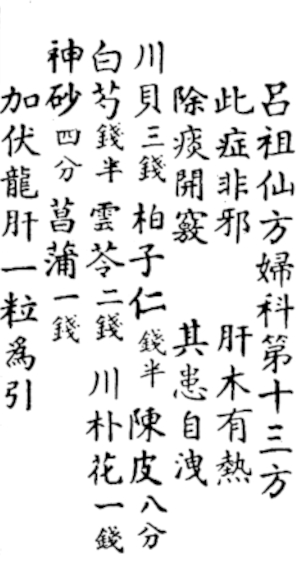 呂祖仙方婦科第十三方
此症非邪 肝木有熱
除痰開竅 其患自洩
川貝三錢 柏子仁錢半 陳皮八分
白芍錢半 雲苓二錢 川朴花一錢
神砂四分 菖蒲一錢
加伏龍肝一粒為引